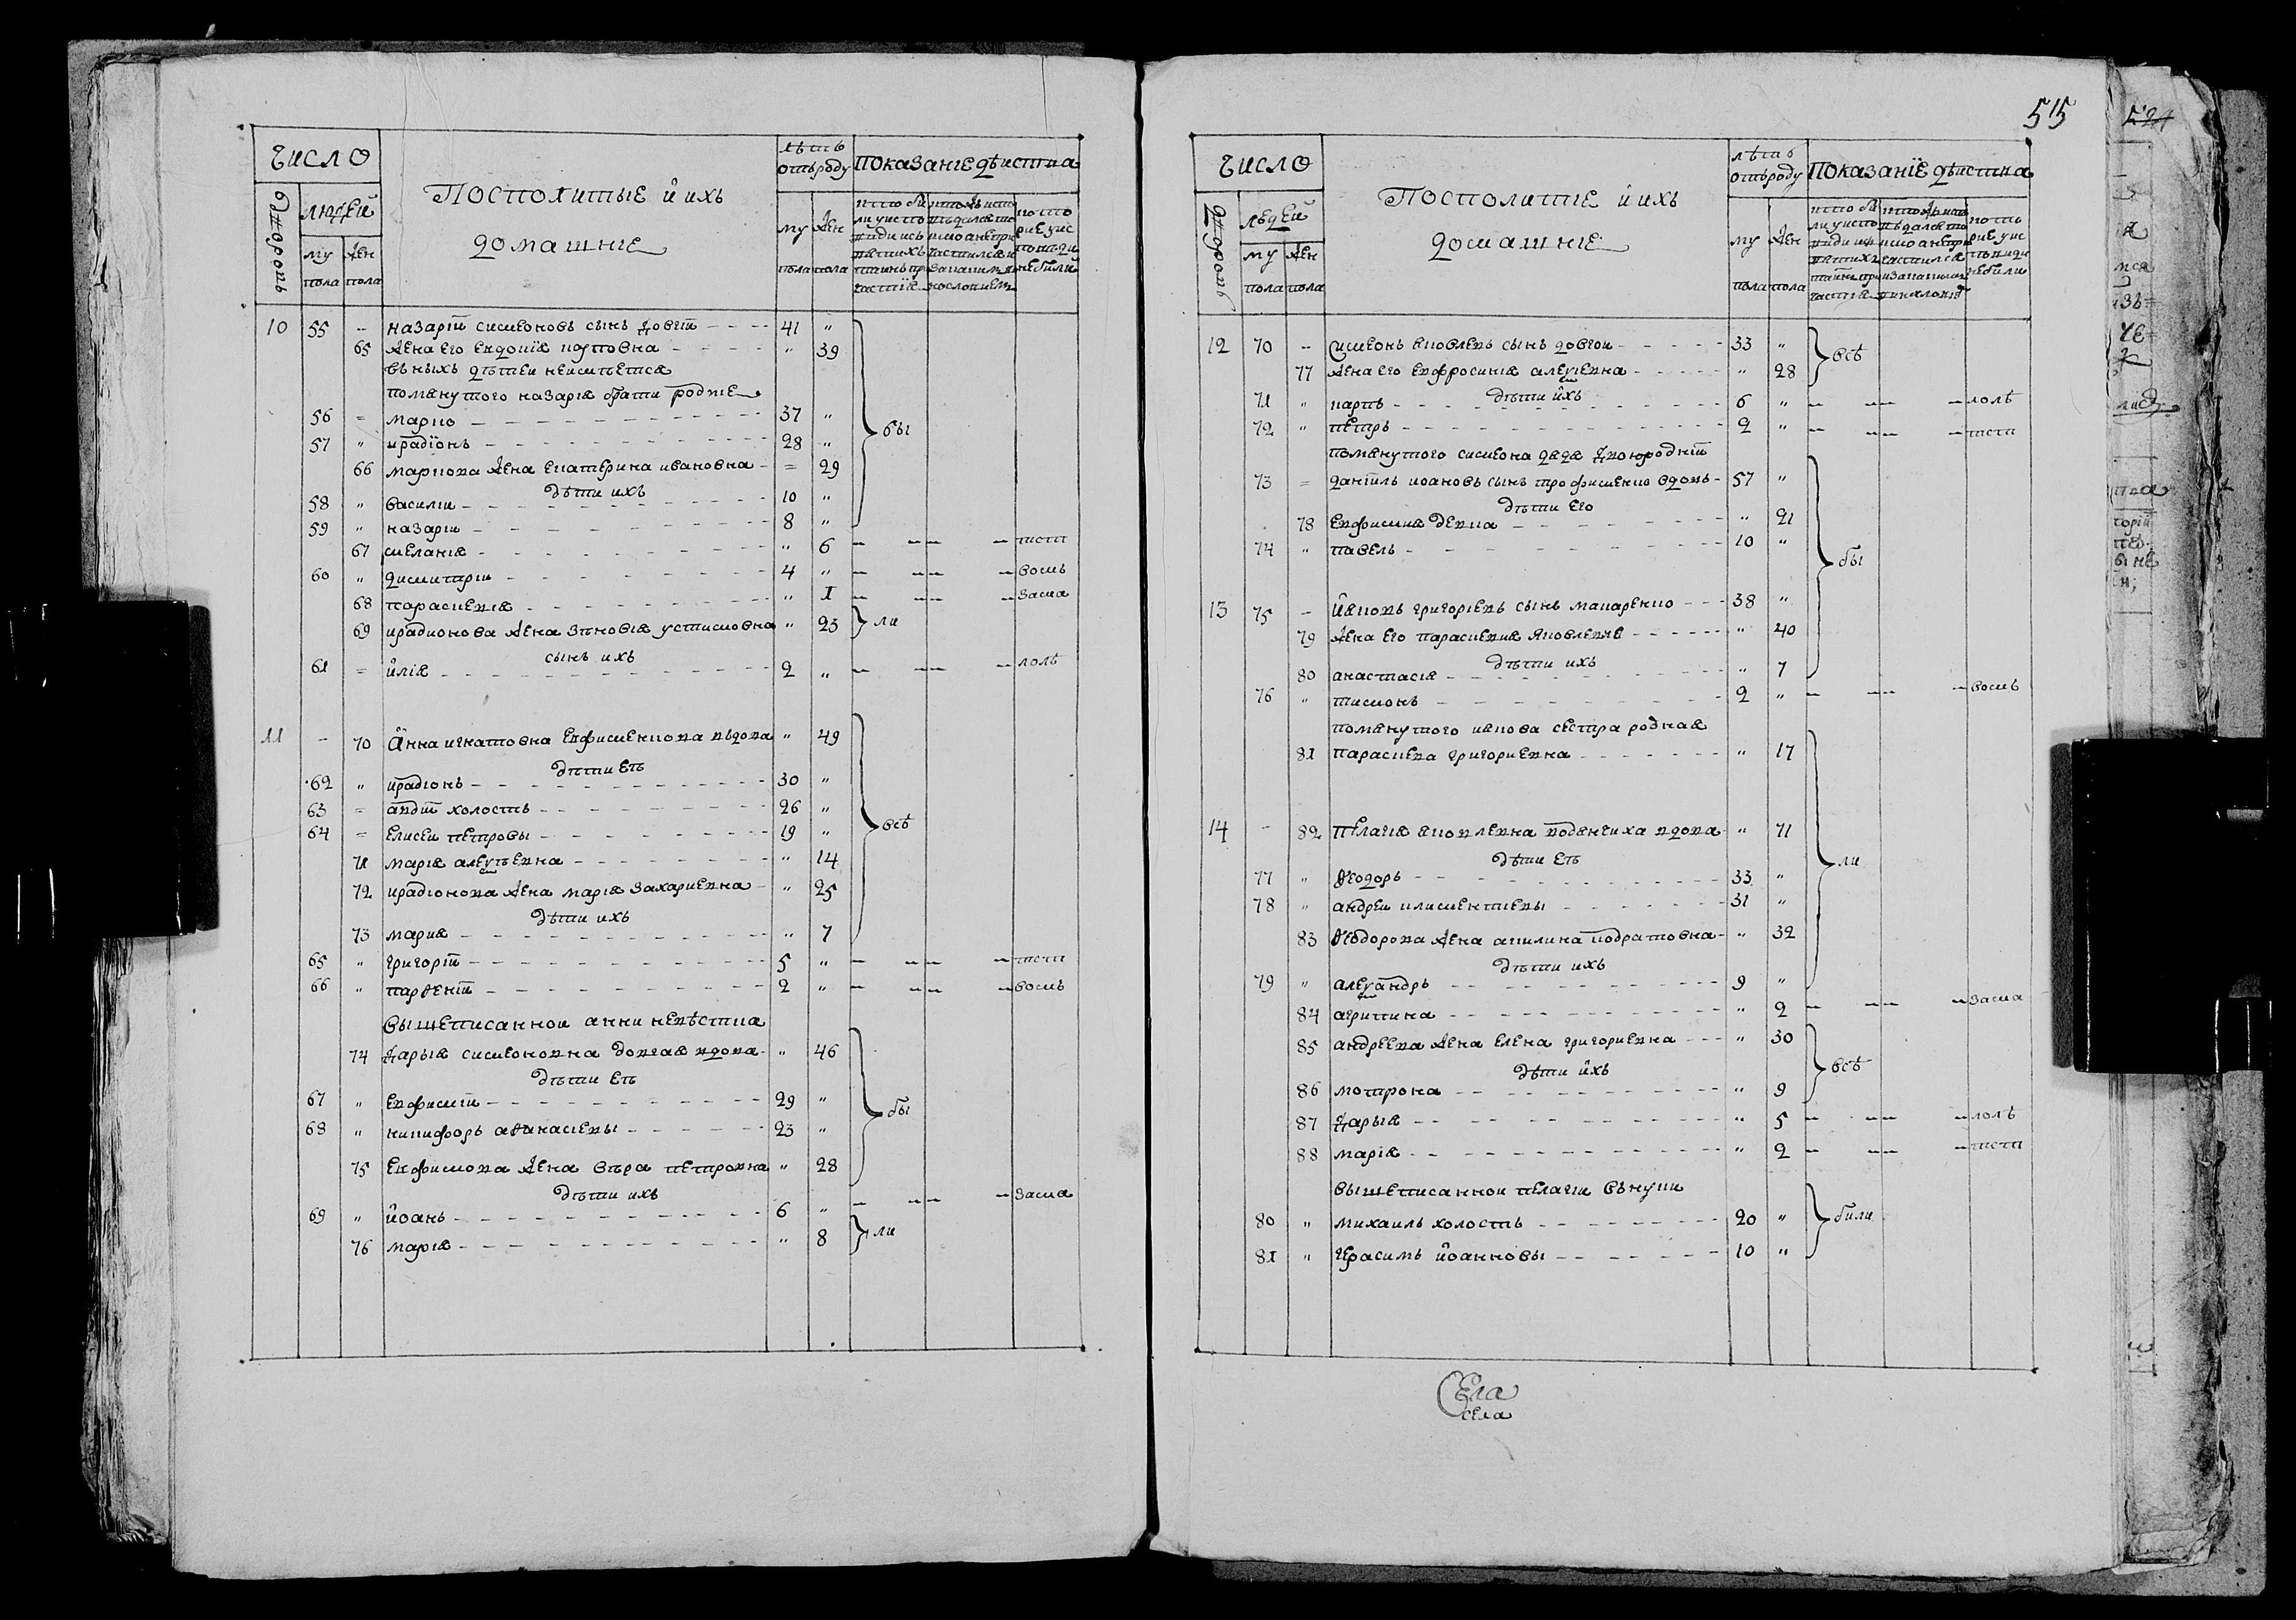 Число
дворовъ
людей
му пола
жен пола
Посполитые и ихъ
домашние
лѣтъ отъ роду
му пола
жен пола
Показание действа
10 55 – назарій симеоновъ сынъ довгій 41 „
65 жена его евдокія карповна „ 39
въ ныхъ дѣтей неимѣется
помянутого назарія брати родніе
56 = марко 37 „
57 „ ирадіонъ 28 „ бы
66 маркова жена екатерина ивановна = 29
дѣти ихъ
58 „ василій 10 „
59 „ назарій 8 „
67 меланія „ 6 – – – – тисти
60 „ димитрій 4 „ – – – – восмь
68 параскевія „ 1 – – – – засма
69 ирадионова жена зѣновія устимовна „ 23 ли
сынъ ихъ
61 = илія 2 „ – – – – лолѣ
11 – 70 Анна игнатовна евфименкова вдова „ 49
дѣти еѣ
62 „ ирадіонъ 30 „
63 = авдій холостъ 26 „
64 = елисей петровы 19 „ всѣ
71 марія алеѯѣевна „ 14
72 ирадіонова жена марія захариевна „ 25
дѣти ихъ
73 мария „ 7
65 „ григорій 5 „ – – – – тисти
66 „ парѳеній 2 „ – – – – восмь
вышеписанной анни невѣстка
74 дарья симеоновна довгая вдова „ 46
дѣти еѣ
67 „ евфимій 29 „ бы
68 „ никифоръ аѳанасіевы 23 „
75 евфимова жена вѣра петровна „ 28
дѣти ихъ
69 „ иоанъ 6 „ – – – – засма
76 марія „ 8 ли
515
Число
дворовъ
людей
му пола
жен пола
Посполитие и ихъ
домашние
лѣтъ отъ роду
му пола
жен пола
Показание действа
12 70 – Симеонъ яковлевъ сынъ довгои 33 „ всѣ
77 жена его евфросинія алеѯіевна „ 28
дѣти ихъ
71 „ карпъ 6 „ – – – – лолѣ
72 „ петръ 2 „ – – – – тисти
помянутого симеона дядя двоюродній
73 = даніилъ иоановъ сынъ трофименко вдовъ 57 „
дѣти его
78 евфимия девка „ 21
74 „ павелъ 10 „ бы
13 75 – Яковъ григоріевъ сынъ макаренко 38 „
79 жена его параскевия яковлевне „ 40
дѣти ихъ
80 анастасія „ 7
76 „ тимонъ 2 „ – – – – восмь
помянутого якова сестра родная
81 параскева григориевна „ 17
14 – 82 пелагія яковлевна водянчиха вдова „ 71
дѣти еѣ ли
77 „ ѳеодоръ 33 „
78 „ андреи климентиевы 31 „
83 ѳеодорова жена акилина кодратовна „ 32
дѣти ихъ
79 „ алеѯандръ 9 „
84 агрипина „ 2 – – – – засма
85 андреева жена елена григориевна „ 30
дѣти ихъ всѣ
86 мотрона „ 9
87 дарья „ 5 – – – – лолѣ
88 марія „ 2 – – – – тисти
вышеписанной пелагіи внуки
80 „ михаилъ холостъ 20 „ били
81 „ герасимъ иоанновы 10 „
Села
села